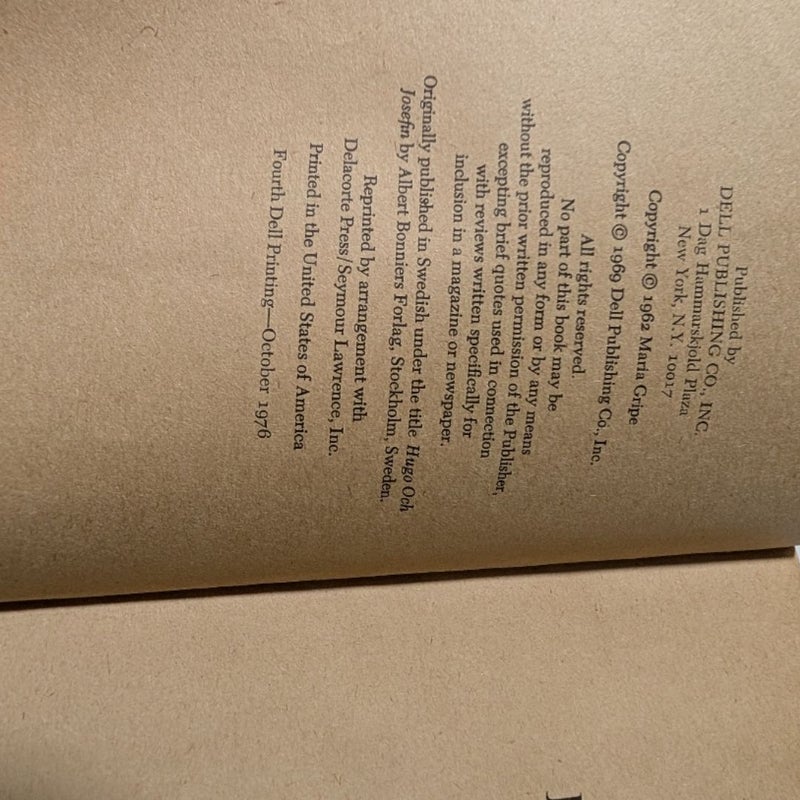 Published by
DELL PUBLISHING CO., INC.
1 Dag Hammarskjold Plaza
New York, N.Y. 10017
Copyright © 1962 Maria Gripe
Copyright © 1969 Dell Publishing Co., Inc.
All rights reserved.
No part of this book may be
reproduced in any form or by any means
without the prior written permission of the Publisher,
excepting brief quotes used in connection
with reviews written specifically for
inclusion in a magazine or newspaper.
Originally published in Swedish under the title Hugo Och
Josefin by Albert Bonniers Forlag, Stockholm, Sweden.
Reprinted by arrangement with
Delacorte Press/Seymour Lawrence, Inc.
Printed in the United States of America
Fourth Dell Printing—October 1976